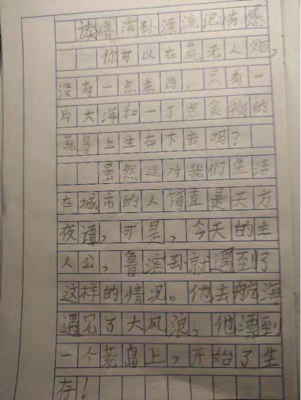 读鲁滨孙漂流记有感
你可以在荒无人烟,
没有一点东西,只有一
片大海和一丁点食物的
荒岛上生存下去吗?
虽然这对我们生活
在城市的人简直是天方
夜谭,可是,今天的主
人公,鲁滨孙就漂到了
这样的情况。他去航海
遇见了大风浪,他漂到
一个荒岛上,开始了生
存!